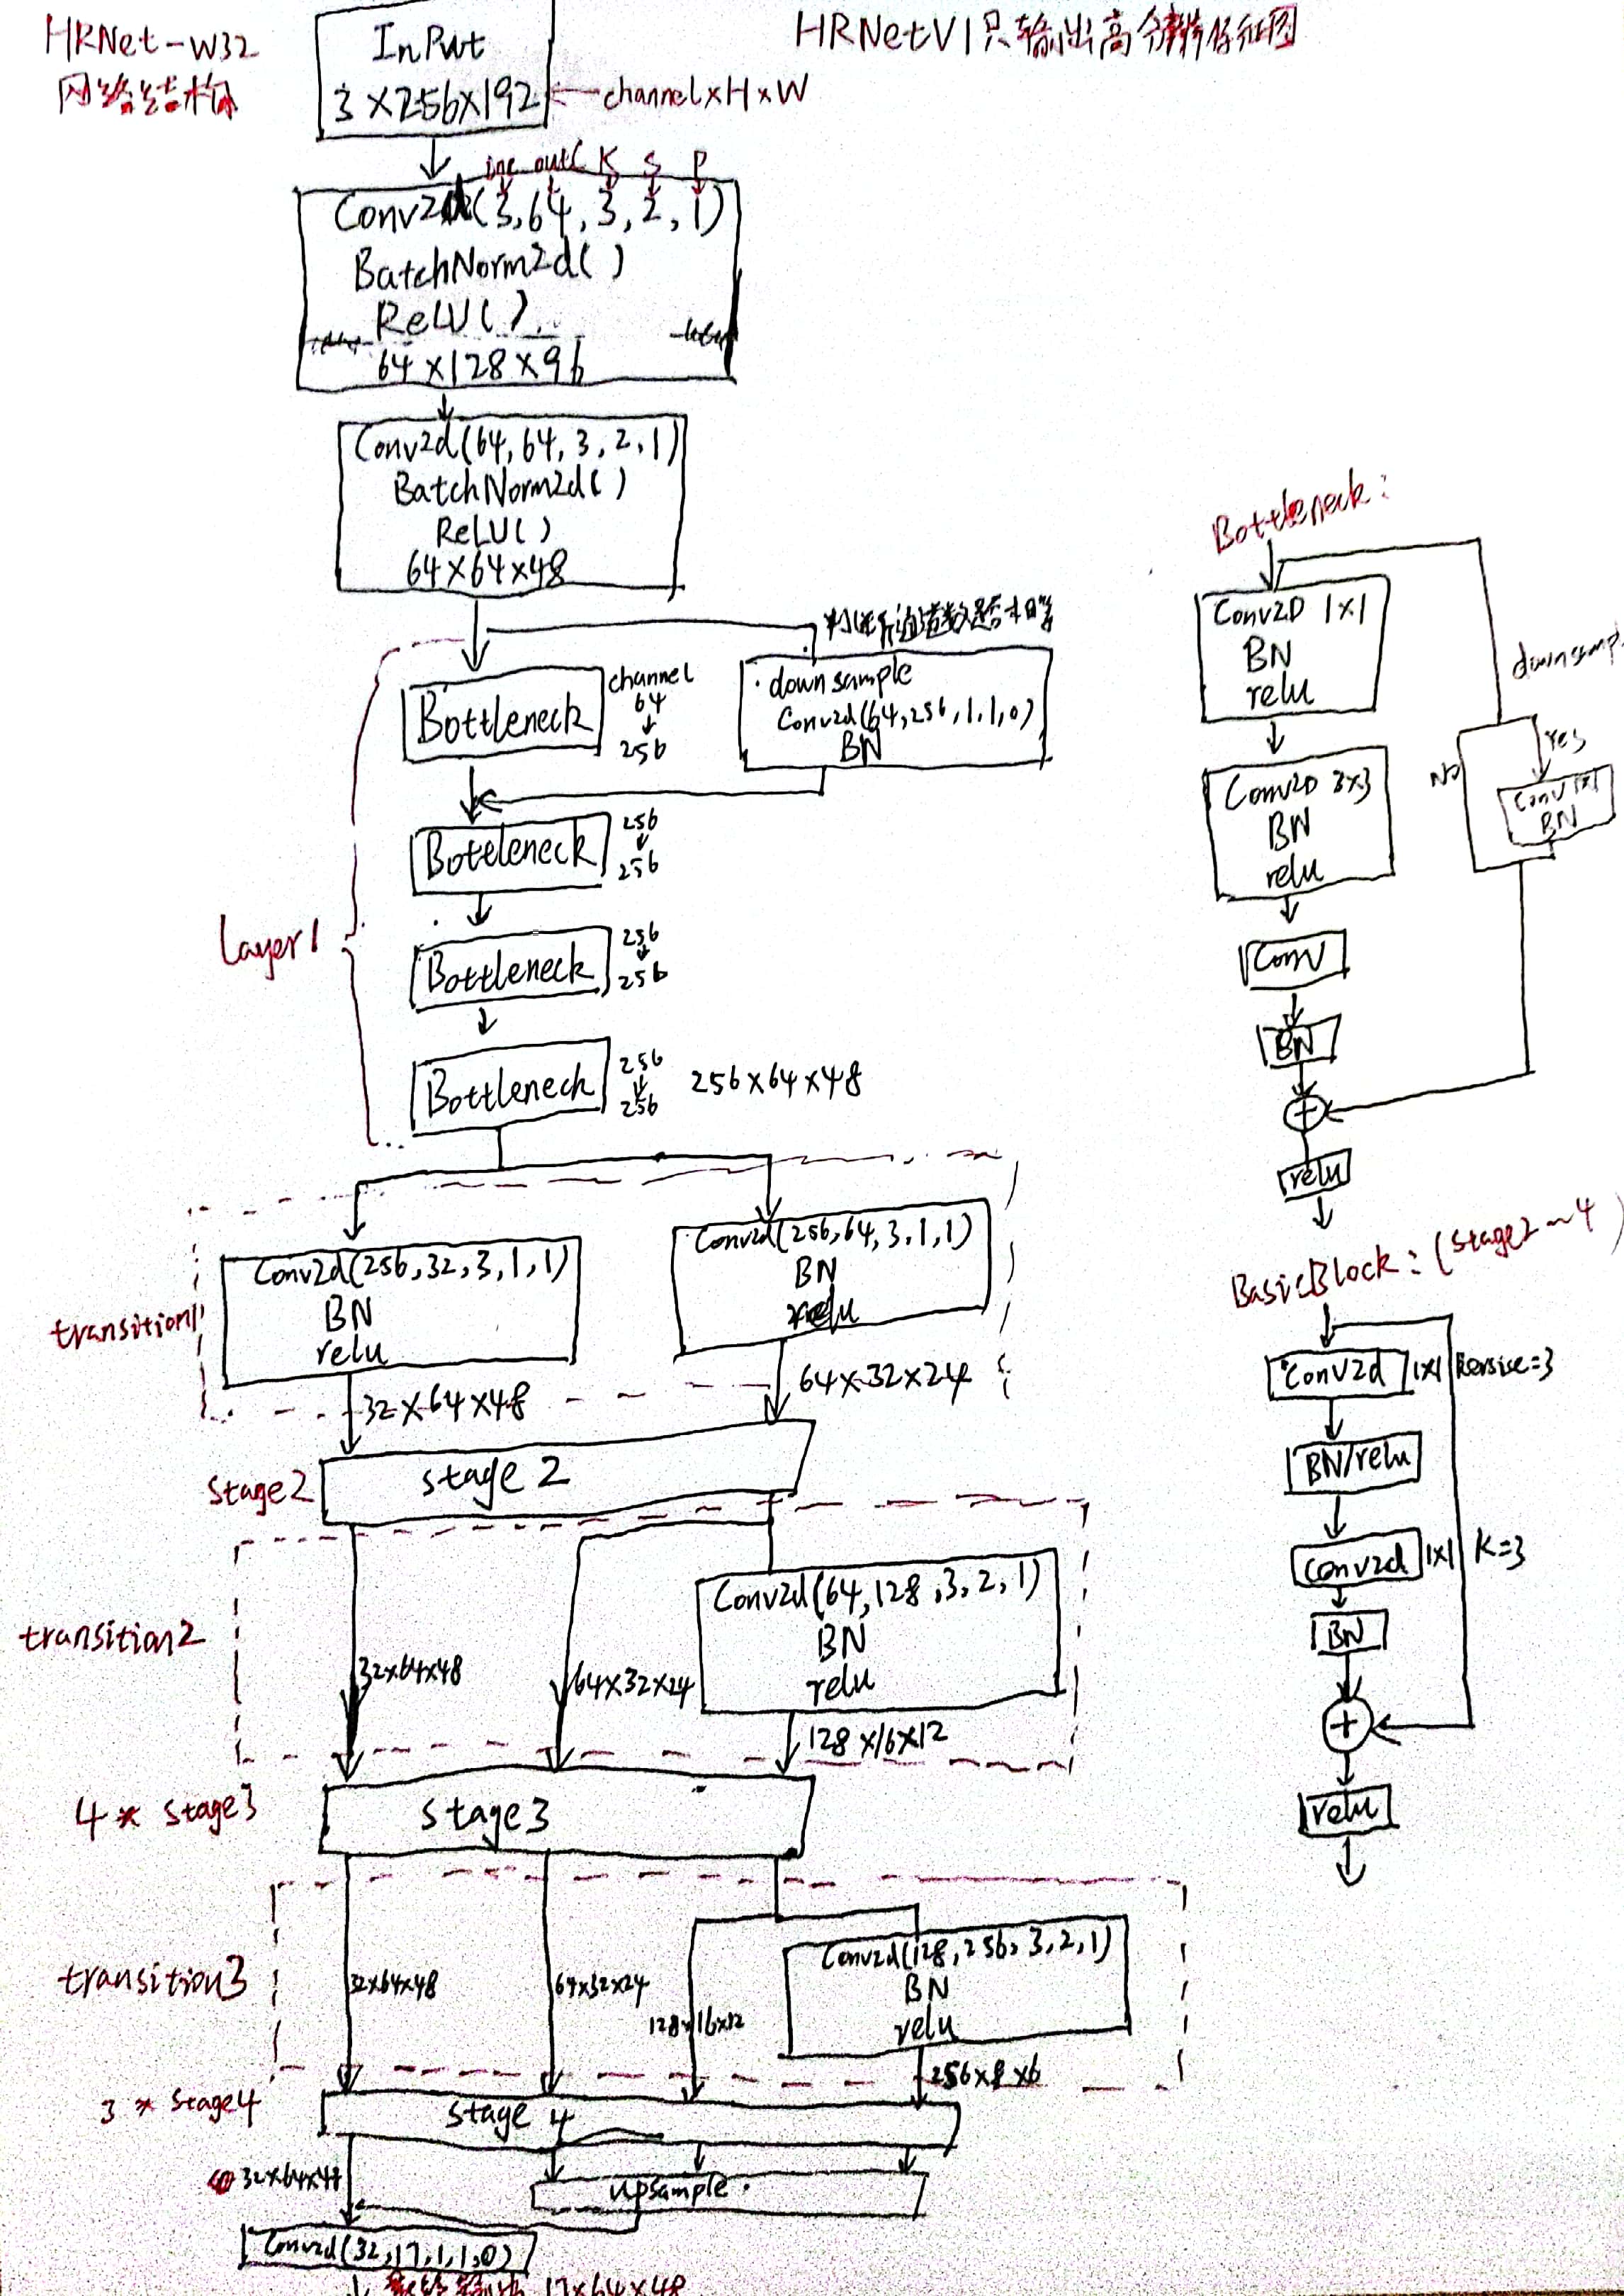 HRNet-W32
网络结构
InPut
3×256×192
channel×H×W
HRNetV1只输出高分辨率特征图
inc outc K S P
Conv2d(3,64,3,2,1)
BatchNorm2d()
ReLU()
64×128×96
Conv2d(64,64,3,2,1)
BatchNorm2d()
ReLU()
64×64×48
通道数是否相等
Layer1
Bottleneck
channel
64
256
downsample
Conv2d(64,256,1,1,0)
BN
Bottleneck
256
256
Bottleneck
256
256
Bottleneck
256
256
256×64×48
transition1
Conv2d(256,32,3,1,1)
BN
relu
Conv2d(256,64,3,1,1)
BN
relu
32×64×48
64×32×24
Stage2
stage 2
transition2
32×64×48
64×32×24
Conv2d(64,128,3,2,1)
BN
relu
128×16×12
4* stage3
stage3
transition3
32×64×48
64×32×24
128×16×12
Conv2d(128,256,3,2,1)
BN
relu
256×8×6
3 * stage4
stage 4
32×64×48
upsample
Conv2d(32,17,1,1,0)
17×64×48
Bottleneck:
Conv2D 1×1
BN
relu
downsamp
No
yes
Conv 1×1
BN
Conv2D 3×3
BN
relu
Conv
BN
+
relu
BasicBlock: (stage2~4)
Conv2d 1×1
BN/relu
Conv2d 1×1 K=3
BN
+
relu